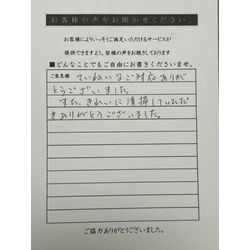 お客様の声をお聞かせください。
お客様によりいっそうご満足いただけるサービスが
提供できますよう、皆様の声をお聴きしております
■どんなことでもご自由にお書きくださいませ。
ご意見欄
ていねいなご対応ありが
とうございました。
また、きれいに清掃していただ
きありがとうございました。
ご協力ありがとうございました。